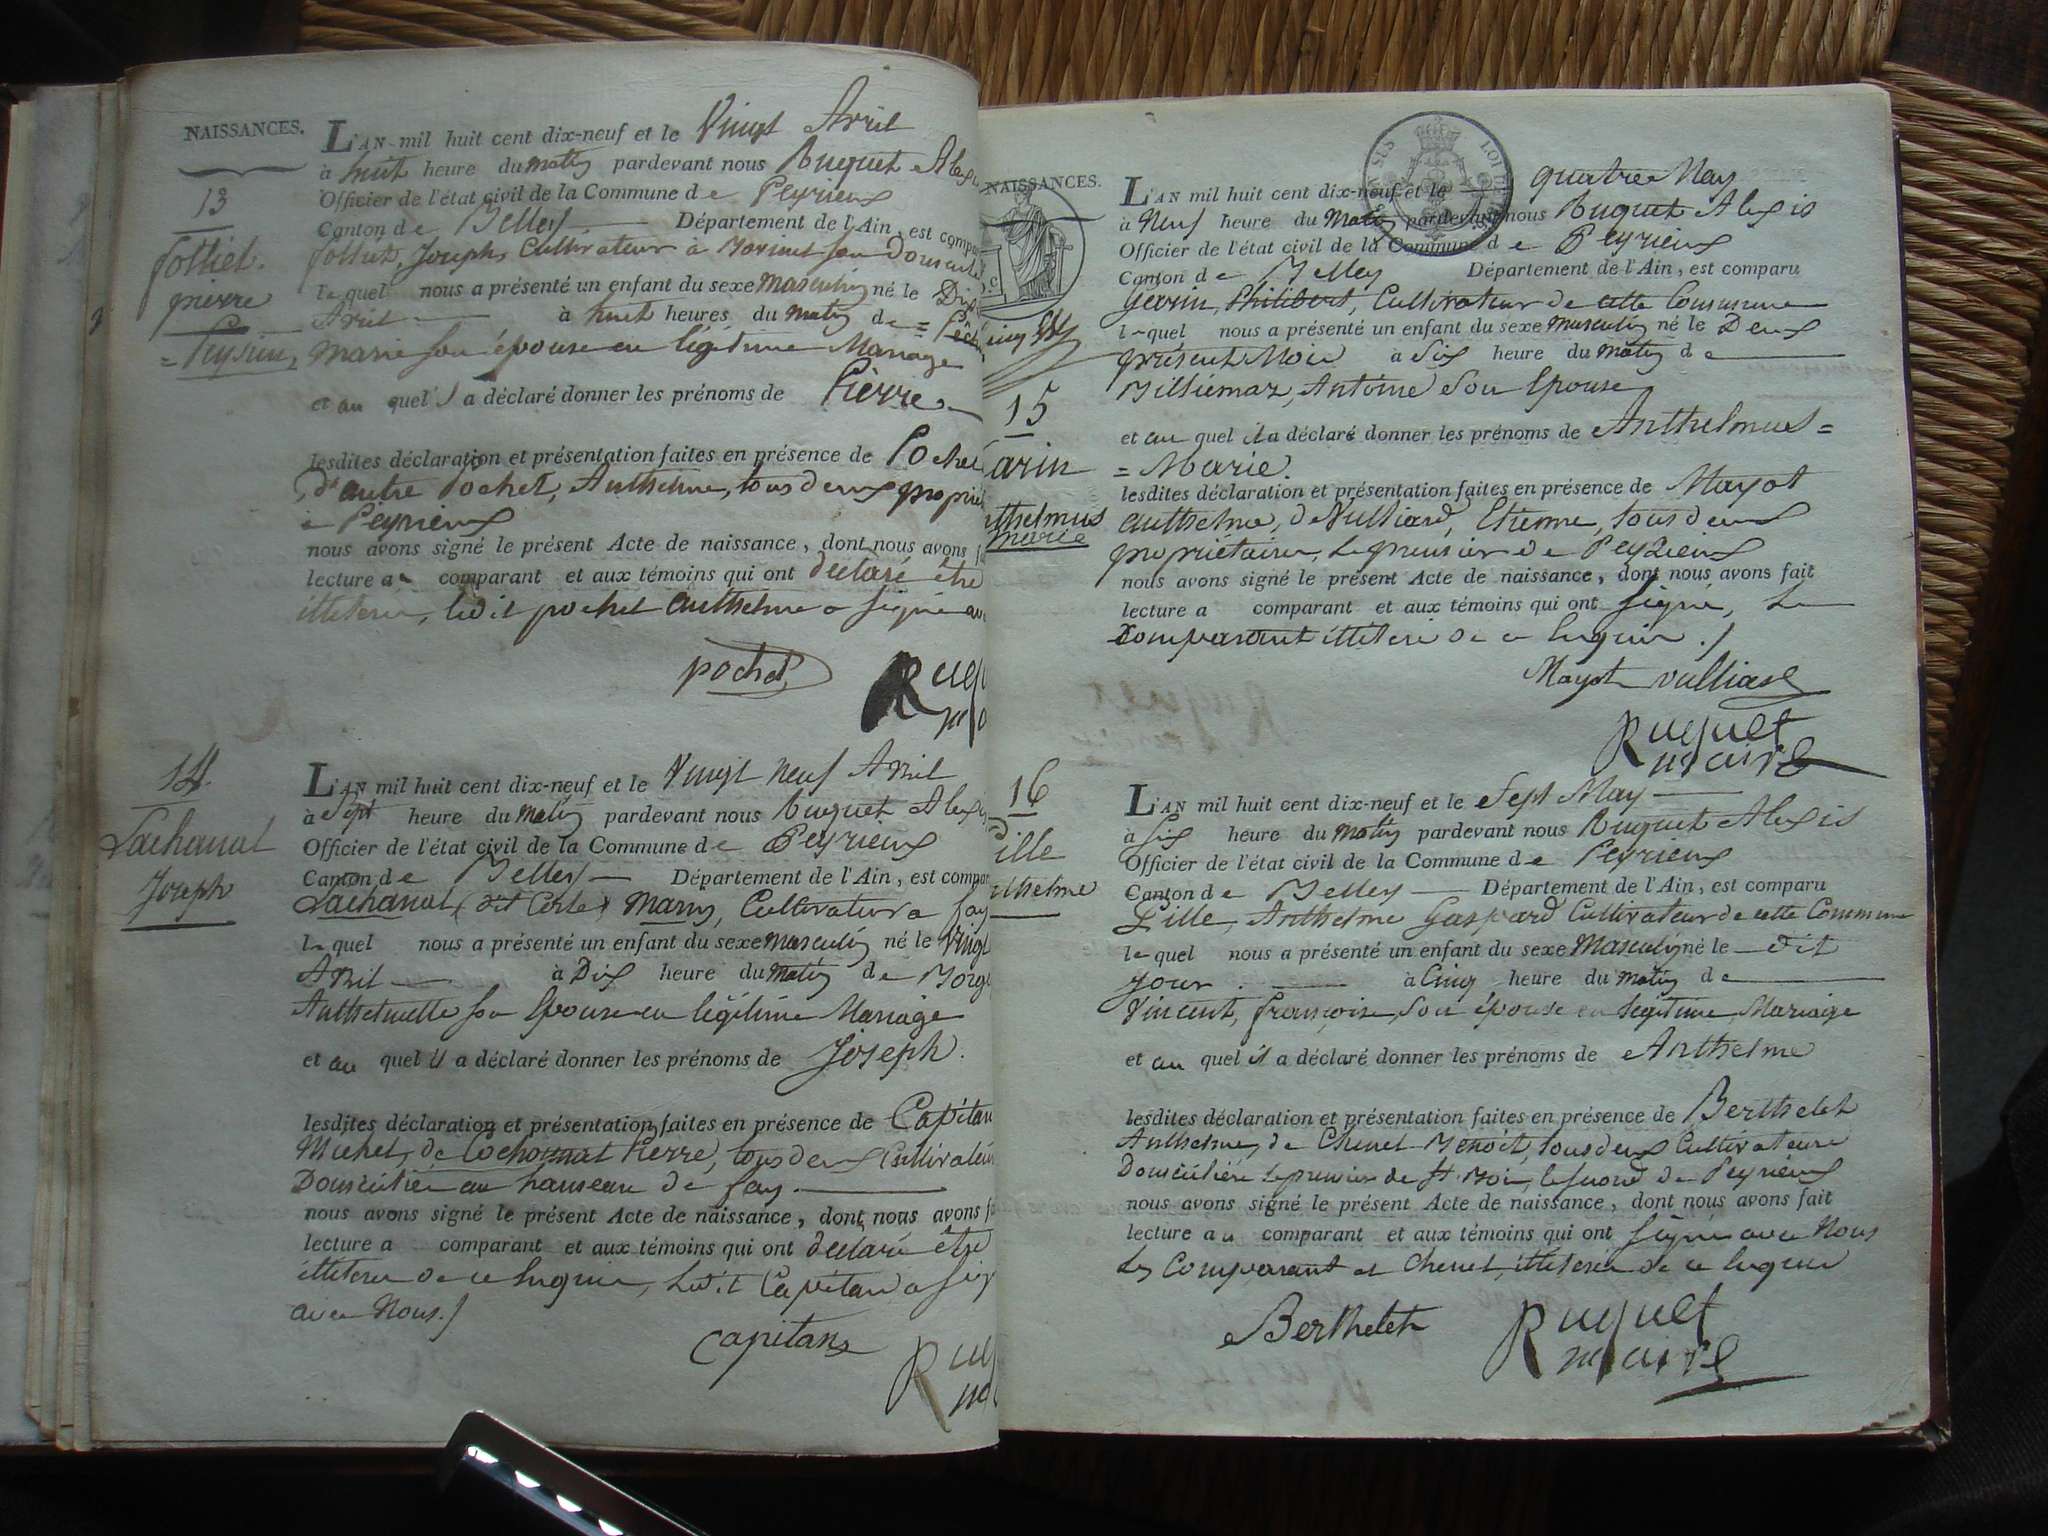 NAISSANCES.
13
folliet.
pierre
Peyrieu
L'AN mil huit cent dix-neuf et le Vingt Avril
à huit heure du matin pardevant nous Ruguet Alexis
Officier de l'état civil de la Commune de Peyrieux
Canton de Belley Département de l'Ain, est comparu
folliet, Joseph, Cultivateur à son Domicile
lequel nous a présenté un enfant du sexe masculin né le Dix
Avril à huit heures du matin de
Marie son épouse en légitime Mariage
et au quel il a déclaré donner les prénoms de Pierre
lesdites déclaration et présentation faites en présence de Pochet
d'autre Pochet, Anthelme, tous deux propriét
à Peyrieux
nous avons signé le présent Acte de naissance, dont nous avons f
lecture au comparant et aux témoins qui ont déclaré être
illiteré, ledit pochet anthelme a signé avec
pochet
Rugu
14.
Lachanal
Joseph
L'AN mil huit cent dix-neuf et le Vingt neuf Avril
à Sept heure du matin pardevant nous Ruguet Alexis
Officier de l'état civil de la Commune de Peyrieux
Canton de Belley Département de l'Ain, est compar
Lachanal (dit ) Marin, Cultivateur a fay
lequel nous a présenté un enfant du sexe masculin né le Vingt
Avril à Dix heure du matin de
Anthelmette son Epouse en légitime Mariage
et au quel il a déclaré donner les prénoms de Joseph.
lesdites déclaration et présentation faites en présence de Capitan
Michel, de Cochonnat Pierre, tous deux Cultivateur
Domicilié au hameau de fay.
nous avons signé le présent Acte de naissance, dont nous avons f
lecture a comparant et aux témoins qui ont déclaré être
illiteré de ce enquis, ledit Capitan a sig
avec Nous./
Capitan
Rug
NAISSANCES.
15
arin
nthelmus
marie
L'AN mil huit cent dix-neuf et le quatre May
à Neuf heure du Matin pardevant nous Ruguet Alexis
Officier de l'état civil de la Commune de Peyrieux
Canton de Belley Département de l'Ain, est comparu
Philibert, Cultivateur de cette Commune
lequel nous a présenté un enfant du sexe masculin né le Deux
présent Mois à Six heure du matin de
Billiemaz, Antoine Son Epouse
et au quel il a déclaré donner les prénoms de Anthelmus=
=Marie.
lesdites déclaration et présentation faites en présence de Mayot
anthelme, de Vulliard, Etienne, tous deux
propriétaire, le premier de Peyrieux
nous avons signé le présent Acte de naissance, dont nous avons fait
lecture a comparant et aux témoins qui ont signé, le
Comparant illiteré de ce enquis./
Mayot vulliard
Ruguet
maire
16
ille
nthelme
L'AN mil huit cent dix-neuf et le Sept May
à Six heure du matin pardevant nous Ruguet Alexis
Officier de l'état civil de la Commune de Peyrieux
Canton de Belley Département de l'Ain, est comparu
Anthelme Gaspard Cultivateur de cette Commune
lequel nous a présenté un enfant du sexe Masculin né le dit
jour. à Cinq heure du matin de
Vincent, françoise, Son épouse en légitime Mariage
et au quel il a déclaré donner les prénoms de Anthelme
lesdites déclaration et présentation faites en présence de Berthelet
Anthelme, de Chenet Benoit, tous deux Cultivateur
Domicilié le premier de St. Boi, le second de Peyrieux
nous avons signé le présent Acte de naissance, dont nous avons fait
lecture au comparant et aux témoins qui ont signé avec Nous
les Comparant et Chenet, illiteré de ce enquis
Berthelet
Ruguet
maire